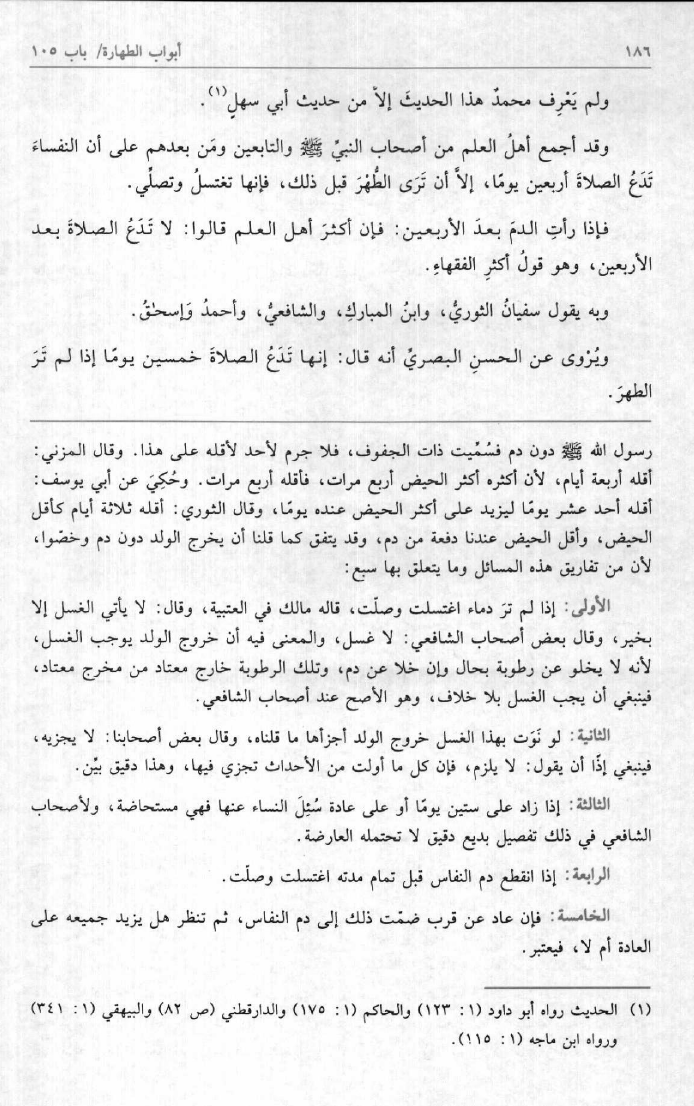 ١٨٦ أبواب الطهارة/ باب ١٠٥
ولم يَعْرِف محمدٌ هذا الحديثَ إلاَّ من حديث أبي سهلٍ(١).
وقد أجمع أهلُ العلم من أصحاب النبيِّ ﷺ والتابعين ومَن بعدهم على أن النفساءَ
تَدَعُ الصلاةَ أربعين يومًا، إلاَّ أن تَرَى الطُّهْرَ قبل ذلك، فإنها تغتسلُ وتصلِّي.
فإذا رأتِ الدمَ بعدَ الأربعين: فإن أكثرَ أهل العلم قالوا: لا تَدَعُ الصلاةَ بعد
الأربعين، وهو قولُ أكثرِ الفقهاءِ.
وبه يقول سفيانُ الثوريُّ، وابنُ المباركِ، والشافعيُّ، وأحمدُ وَإسحٰقُ.
ويُرْوى عن الحسنِ البصريِّ أنه قال: إنها تَدَعُ الصلاةَ خمسين يومًا إذا لم تَرَ
الطهرَ.
رسول الله ﷺ دون دم فسُمِّيت ذات الجفوف، فلا جرم لأحد لأقله على هذا. وقال المزني:
أقله أربعة أيام، لأن أكثره أكثر الحيض أربع مرات، فأقله أربع مرات. وحُكِيَ عن أبي يوسف:
أقله أحد عشر يومًا ليزيد على أكثر الحيض عنده يومًا، وقال الثوري: أقله ثلاثة أيام كأقل
الحيض، وأقل الحيض عندنا دفعة من دم، وقد يتفق كما قلنا أن يخرج الولد دون دم وخصّوا،
لأن من تفاريق هذه المسائل وما يتعلق بها سبع:
الأولى: إذا لم ترَ دماء اغتسلت وصلّت، قاله مالك في العتبية، وقال: لا يأتي الغسل إلا
بخير، وقال بعض أصحاب الشافعي: لا غسل، والمعنى فيه أن خروج الولد يوجب الغسل،
لأنه لا يخلو عن رطوبة بحال وإن خلا عن دم، وتلك الرطوبة خارج معتاد من مخرج معتاد،
فينبغي أن يجب الغسل بلا خلاف، وهو الأصح عند أصحاب الشافعي.
الثانية: لو نَوَت بهذا الغسل خروج الولد أجزأها ما قلناه، وقال بعض أصحابنا: لا يجزيه،
فينبغي إذًا أن يقول: لا يلزم، فإن كل ما أولت من الأحداث تجزي فيها، وهذا دقيق بيِّن.
الثالثة: إذا زاد على ستين يومًا أو على عادة سُئِلَ النساء عنها فهي مستحاضة، ولأصحاب
الشافعي في ذلك تفصيل بديع دقيق لا تحتمله العارضة.
الرابعة: إذا انقطع دم النفاس قبل تمام مدته اغتسلت وصلّت.
الخامسة: فإن عاد عن قرب ضمّت ذلك إلى دم النفاس، ثم تنظر هل يزيد جميعه على
العادة أم لا، فيعتبر.
(١) الحديث رواه أبو داود (١: ١٢٣) والحاكم (١: ١٧٥) والدارقطني (ص ٨٢) والبيهقي (١: ٣٤١)
ورواه ابن ماجه (١: ١١٥).